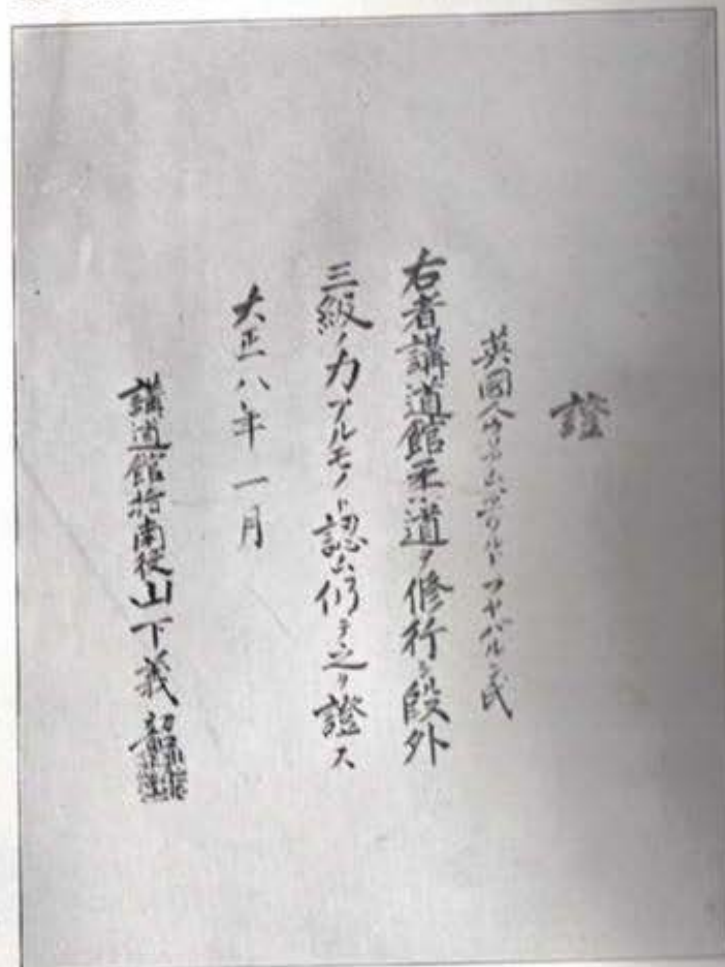 證
英國人ウリヤムエワルト フヤバルン氏
右者講道館柔道ヲ修行シ段外
三級ノ力アルモノト認ム仍テ之ヲ證ス
大正八年一月
講道館指南役山下義韶